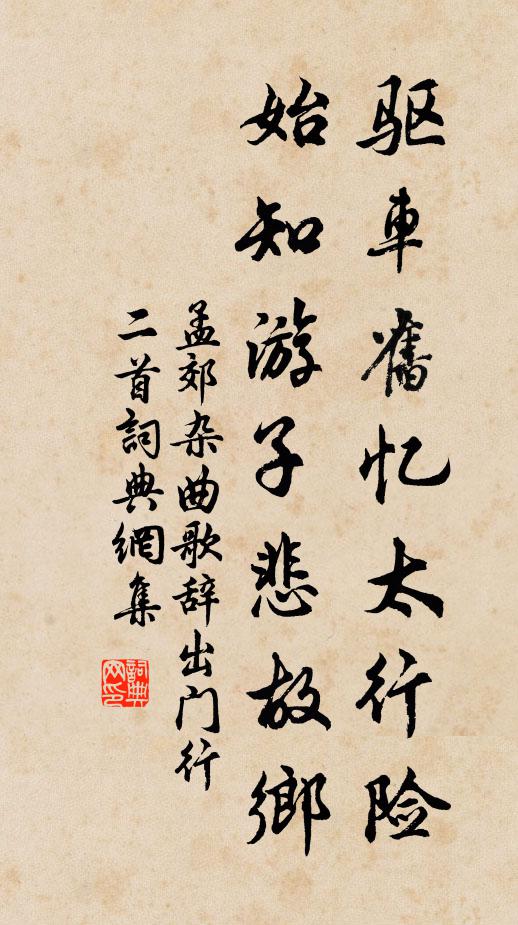 驱車舊忆太行险
始知游子悲故鄉
孟郊杂曲歌辞出门行
二首詞典網集
詞典
网印